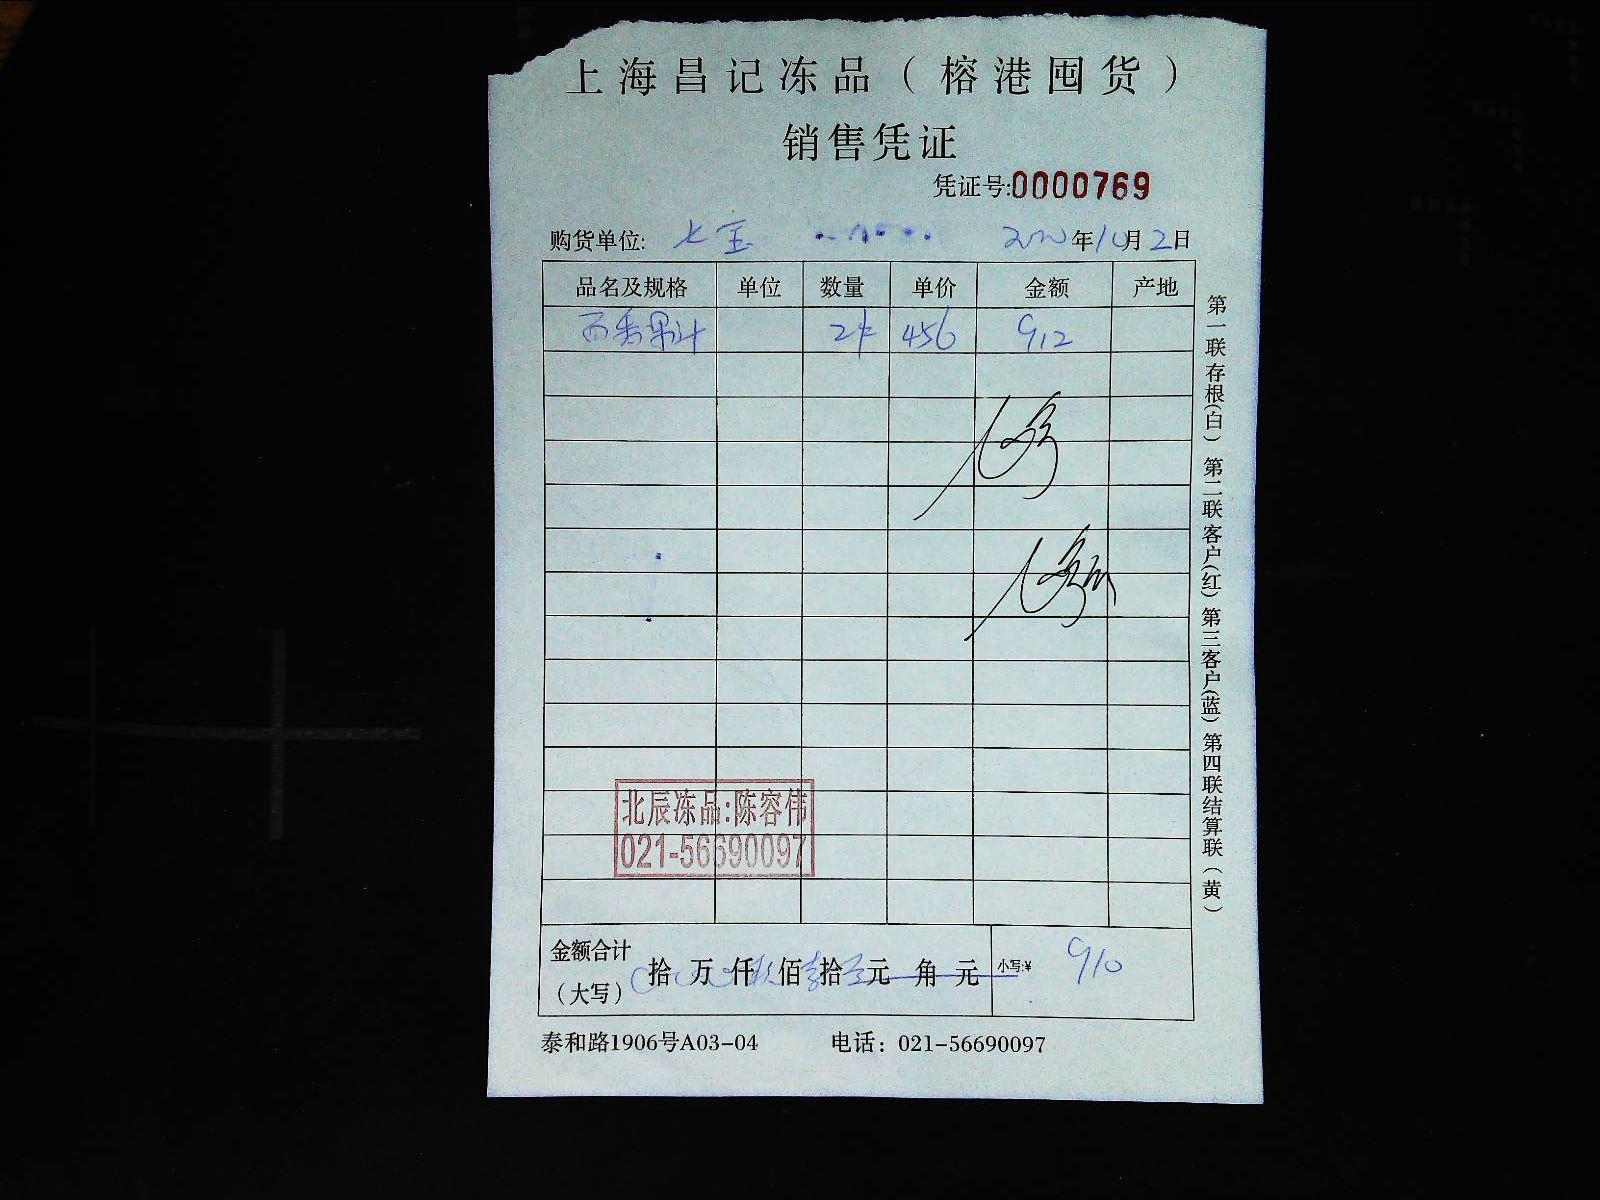 上海昌记冻品（榕港囤货）
销售凭证
凭证号:0000769
购货单位: 七宝 2020年10月2日
品名及规格 单位 数量 单价 金额 产地
西番果汁 2件 456 912
北辰冻品:陈容伟
021-56690097
金额合计（大写） 拾 万 仟 佰 拾 元 角 元 小写:¥ 910
泰和路1906号A03-04 电话：021-56690097
第一联存根(白) 第二联客户(红) 第三客户(蓝) 第四联结算联（黄）